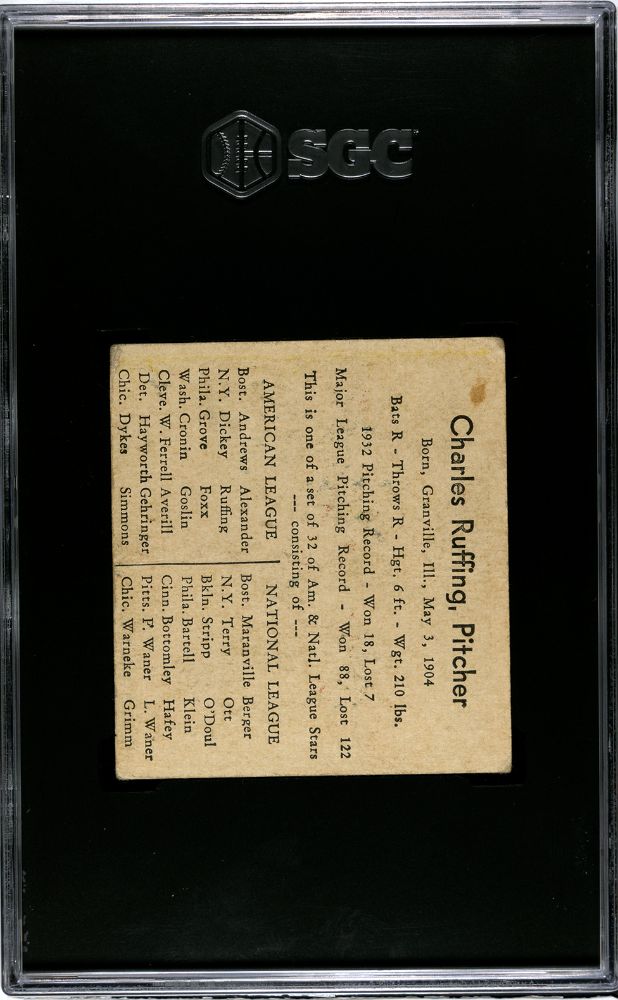 SGC
Charles Ruffing, Pitcher
Born, Granville, Ill., May 3, 1904
Bats R - Throws R - Hgt. 6 ft. - Wgt. 210 lbs.
1932 Pitching Record - Won 18, Lost 7
Major League Pitching Record - Won 88, Lost 122
This is one of a set of 32 of Am. & Natl. League Stars
--- consisting of ---
AMERICAN LEAGUE
Bost. Andrews Alexander
N.Y. Dickey Ruffing
Phila. Grove Foxx
Wash. Cronin Goslin
Cleve. W. Ferrell Averill
Det. Hayworth Gehringer
Chic. Dykes Simmons
NATIONAL LEAGUE
Bost. Maranville Berger
N.Y. Terry Ott
Bkln. Stripp O'Doul
Phila. Bartell Klein
Cinn. Bottomley Hafey
Pitts. P. Waner L. Waner
Chic. Warneke Grimm